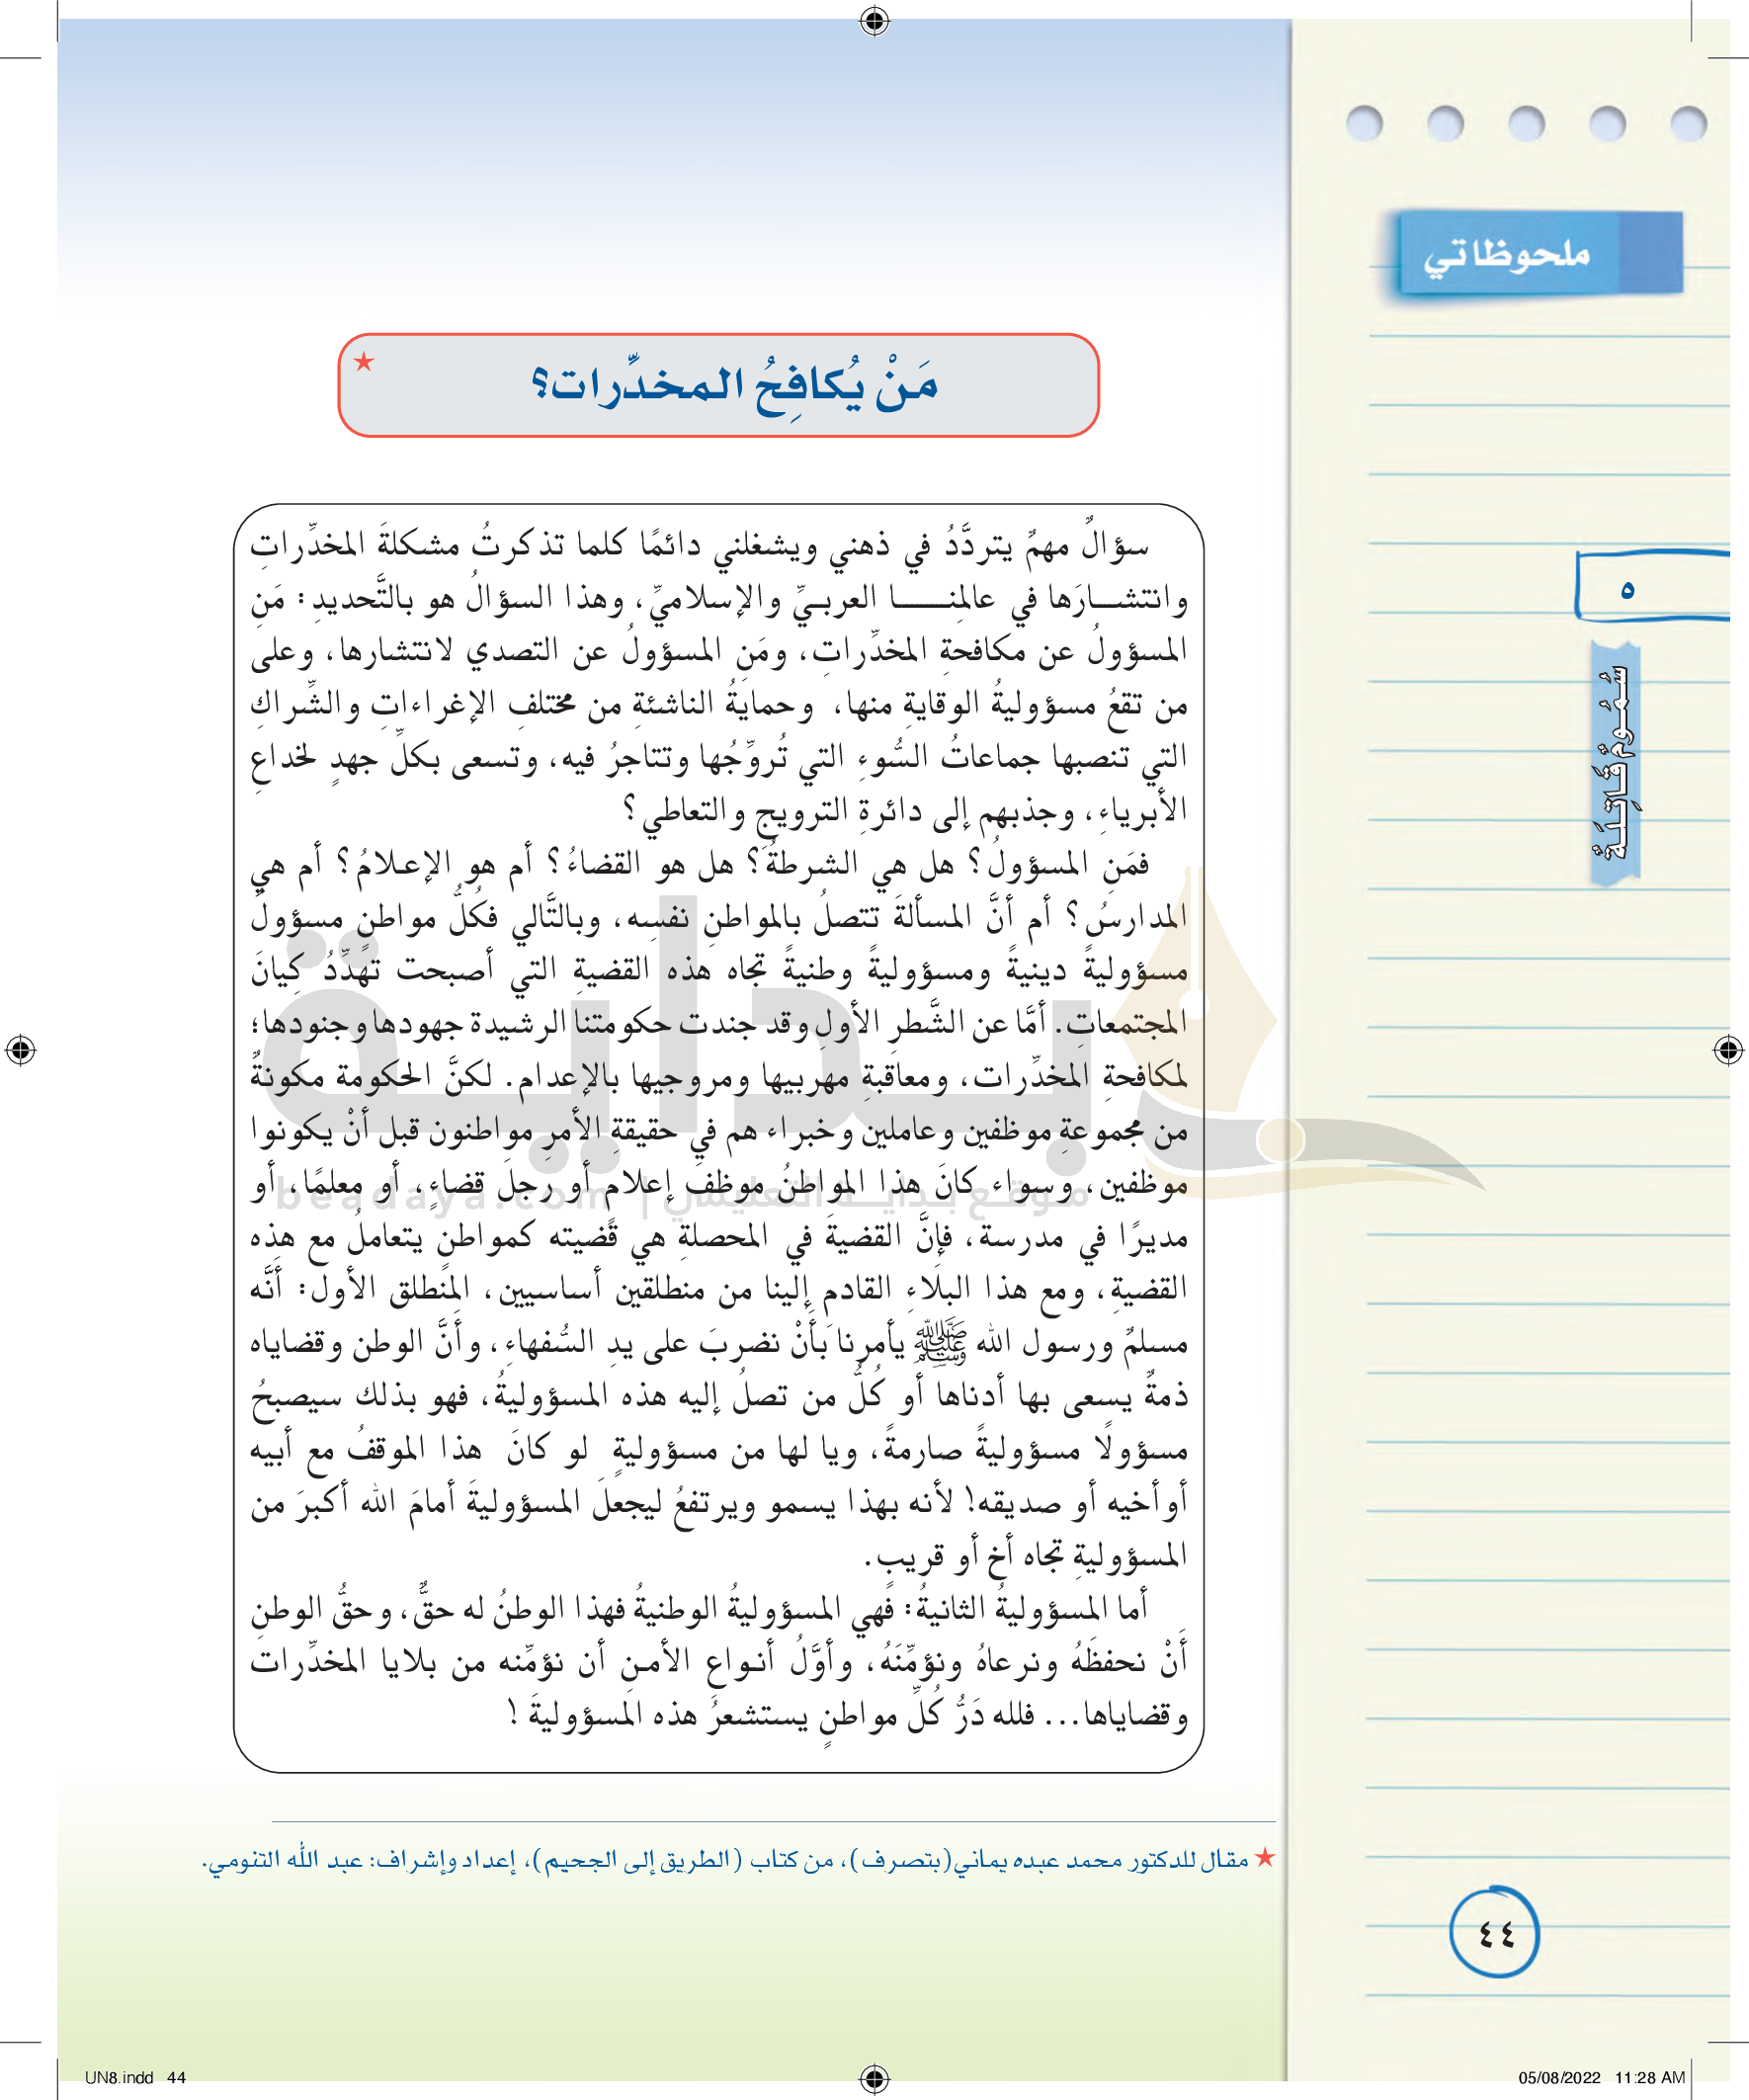 ملحوظاتي
٥
سُمُومٌ قَاتِلَةٌ
مَنْ يُكافِحُ المخدِّرات؟ ★
سؤالٌ مهمٌ يتردَّدُ في ذهني ويشغلني دائمًا كلما تذكرتُ مشكلةَ المخدِّراتِ
وانتشارَها في عالمِنا العربيِّ والإسلاميِّ، وهذا السؤالُ هو بالتَّحديدِ: مَنِ
المسؤولُ عن مكافحةِ المخدِّراتِ، ومَنِ المسؤولُ عن التصدي لانتشارها، وعلى
من تقعُ مسؤوليةُ الوقايةِ منها، وحمايةُ الناشئةِ من مختلفِ الإغراءاتِ والشِّراكِ
التي تنصبها جماعاتُ السُّوءِ التي تُروِّجُها وتتاجرُ فيه، وتسعى بكلِّ جهدٍ لخداعِ
الأبرياءِ، وجذبهم إلى دائرةِ الترويجِ والتعاطي؟
فمَنِ المسؤولُ؟ هل هي الشرطةُ؟ هل هو القضاءُ؟ أم هو الإعلامُ؟ أم هي
المدارسُ؟ أم أنَّ المسألةَ تتصلُ بالمواطنِ نفسِه، وبالتَّالي فكُلُّ مواطنٍ مسؤولٌ
مسؤوليةً دينيةً ومسؤوليةً وطنيةً تجاه هذه القضيةِ التي أصبحت تهدِّدُ كِيانَ
المجتمعاتِ. أمَّا عن الشَّطرِ الأولِ وقد جندت حكومتنا الرشيدة جهودها وجنودها؛
لمكافحةِ المخدِّرات، ومعاقبةِ مهربيها ومروجيها بالإعدام. لكنَّ الحكومة مكونةٌ
من مجموعةِ موظفين وعاملين وخبراء هم في حقيقةِ الأمرِ مواطنون قبل أنْ يكونوا
موظفين، وسواء كانَ هذا المواطنُ موظفَ إعلامٍ أو رجلَ قضاءٍ، أو معلمًا، أو
مديرًا في مدرسة، فإنَّ القضيةَ في المحصلةِ هي قضيته كمواطنٍ يتعاملُ مع هذِه
القضيةِ، ومع هذا البلاءِ القادمِ إلينا من منطلقين أساسيين، المنطلق الأول: أنَّه
مسلمٌ ورسول الله ﷺ يأمرنا بأنْ نضربَ على يدِ السُّفهاءِ، وأنَّ الوطن وقضاياه
ذمةٌ يسعى بها أدناها أو كُلُّ من تصلُ إليه هذه المسؤوليةُ، فهو بذلك سيصبحُ
مسؤولًا مسؤوليةً صارمةً، ويا لها من مسؤوليةٍ لو كانَ هذا الموقفُ مع أبيه
أوأخيه أو صديقه! لأنه بهذا يسمو ويرتفعُ ليجعلَ المسؤوليةَ أمامَ الله أكبرَ من
المسؤوليةِ تجاه أخ أو قريبٍ.
أما المسؤوليةُ الثانيةُ: فهي المسؤوليةُ الوطنيةُ فهذا الوطنُ له حقٌّ، وحقُّ الوطنِ
أَنْ نحفظَهُ ونرعاهُ ونؤمِّنَهُ، وأوَّلُ أنواعِ الأمنِ أن نؤمِّنه من بلايا المخدِّرات
وقضاياها... فلله دَرُّ كُلِّ مواطنٍ يستشعرُ هذه المسؤوليةَ!
بداية
موقع بداية التعليمي | beadaya.com
★ مقال للدكتور محمد عبده يماني(بتصرف)، من كتاب (الطريق إلى الجحيم)، إعداد وإشراف: عبد الله التنومي.
٤٤
UN8.indd 44
05/08/2022 11:28 AM